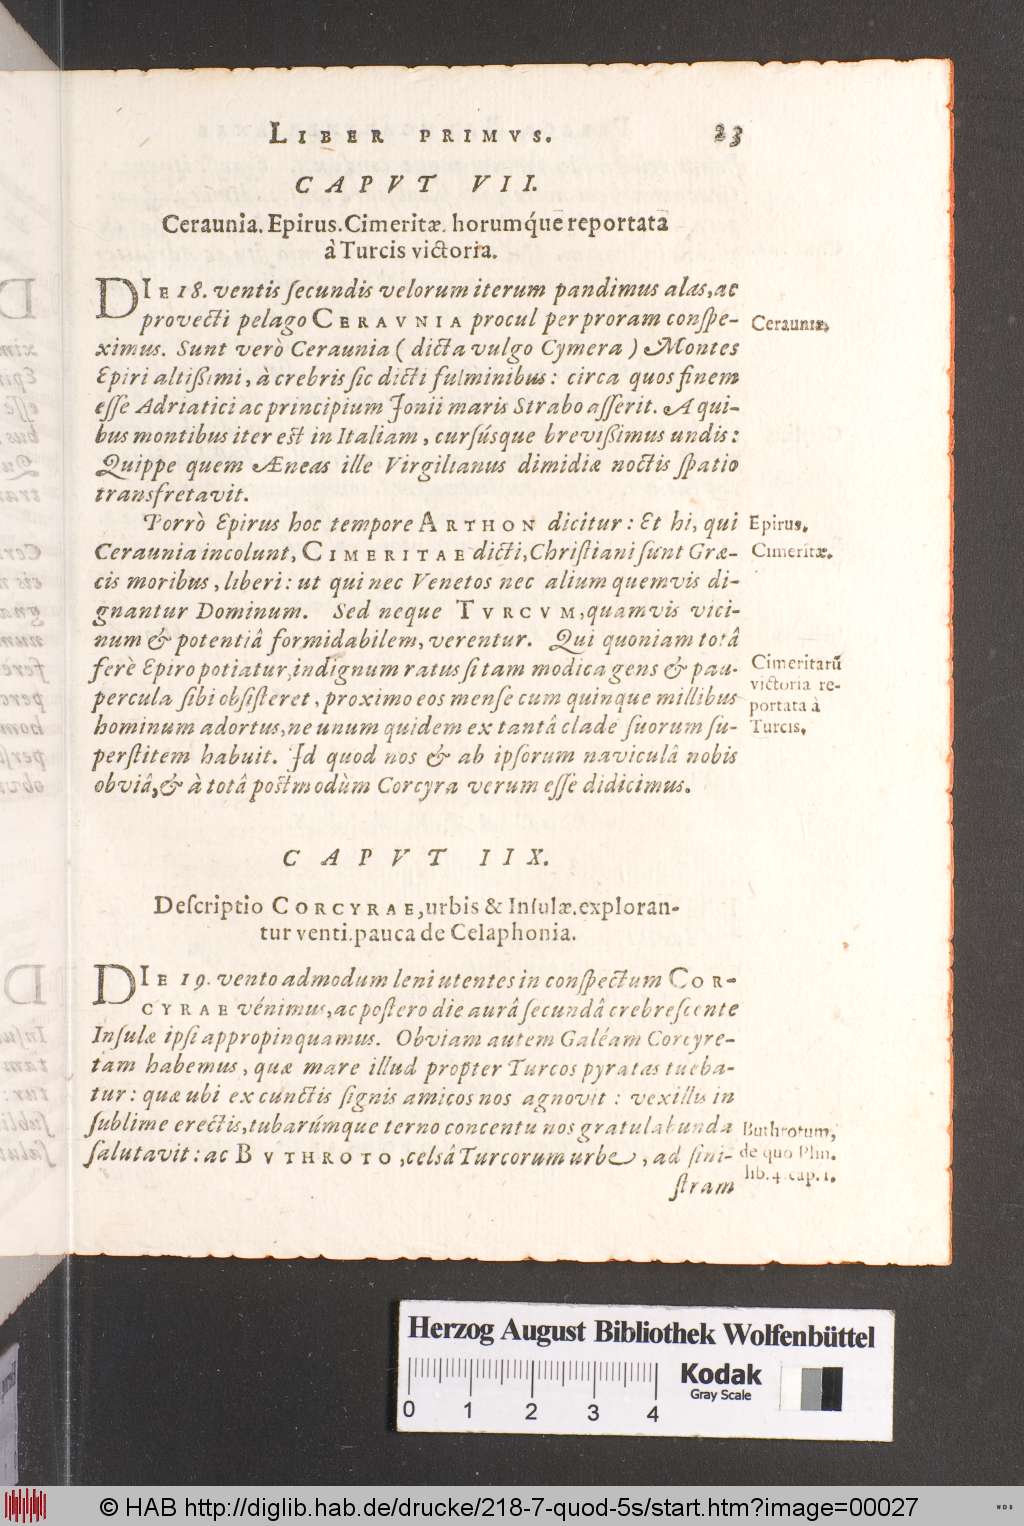 LIBER PRIMVS. 23
CAPVT VII.
Ceraunia. Epirus. Cimeritæ. horumq́ue reportata
à Turcis victoria.
DIE 18. ventis ſecundis velorum iterum pandimus alas, ac
provecti pelago CERAVNIA procul per proram conſpe-
Ceraunia,
ximus. Sunt verò Ceraunia ( dicta vulgo Cymera ) Montes
Epiri altißimi, à crebris ſic dicti fulminibus: circa quos finem
eſſe Adriatici ac principium Jonii maris Strabo aſſerit. A qui-
bus montibus iter eſt in Italiam, curſúsque brevißimus undis:
Quippe quem Æneas ille Virgilianus dimidiæ noctis ſpatio
transfretavit.
Porrò Epirus hoc tempore ARTHON dicitur: Et hi, qui
Epirus.
Ceraunia incolunt, CIMERITAE dicti, Chriſtiani ſunt Græ-
Cimeritæ.
cis moribus, liberi: ut qui nec Venetos nec alium quemvis di-
gnantur Dominum. Sed neque TVRCVM, quamvis vici-
num & potentiâ formidabilem, verentur. Qui quoniam totâ
ferè Epiro potiatur, indignum ratus ſi tam modica gens & pau-
percula ſibi obſiſteret, proximo eos menſe cum quinque millibus
hominum adortus, ne unum quidem ex tantâ clade ſuorum ſu-
perſtitem habuit. Jd quod nos & ab ipſorum naviculâ nobis
obviâ, & à totâ poſtmodùm Corcyra verum eſſe didicimus.
Cimeritarū
victoria re-
portata à
Turcis.
CAPVT IIX.
Deſcriptio CORCYRAE, urbis & Inſulæ. exploran-
tur venti. pauca de Celaphonia.
DIE 19. vento admodum leni utentes in conſpectum COR-
CYRAE vénimus, ac poſtero die aurâ ſecundâ crebreſcente
Inſulæ ipſi appropinquamus. Obviam autem Galéam Corcyre-
tam habemus, quæ mare illud propter Turcos pyratas tueba-
tur: quæ ubi ex cunctis ſignis amicos nos agnovit: vexillis in
ſublime erectis, tubarúmque terno concentu nos gratulabunda
ſalutavit: ac BVTHROTO, celsâ Turcorum urbe, ad ſini-
ſtram
Buthrotum,
de quo Plin.
lib. 4. cap. 1.
Herzog August Bibliothek Wolfenbüttel
Kodak
Gray Scale
0 1 2 3 4
© HAB http://diglib.hab.de/drucke/218-7-quod-5s/start.htm?image=00027